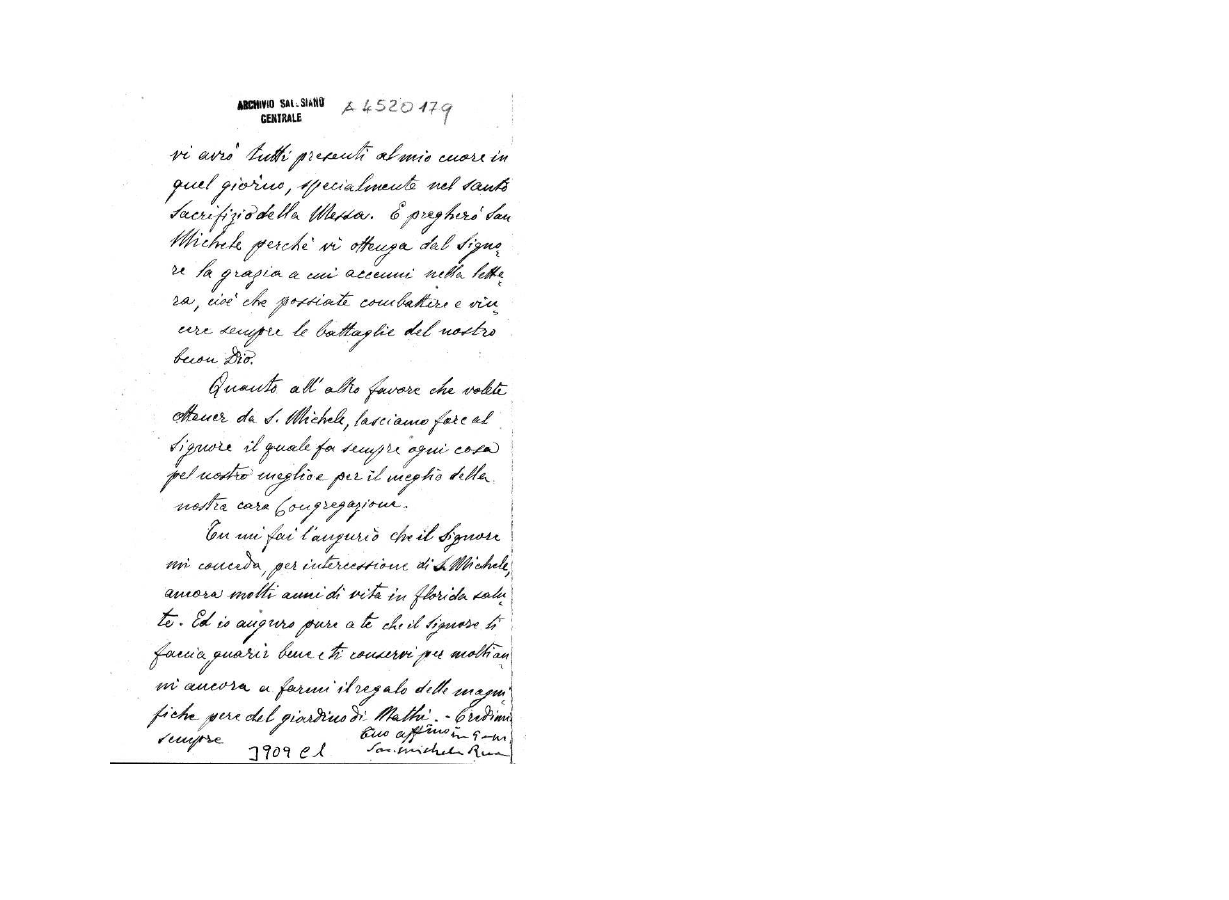 ARCHIVIO SALESIANO
CENTRALE
A 4520179
vi avrò tutti presenti al mio cuore in
quel giorno, specialmente nel santo
Sacrifizio della Messa. E pregherò San
Michele perché vi ottenga dal Signo-
re la grazia a cui accenni nella lette-
ra, cioè che possiate combattere e vin-
cere sempre le battaglie del nostro
buon Dio.
Quanto all'altro favore che volete
ottener da S. Michele, lasciamo fare al
Signore il quale fa sempre ogni cosa
pel nostro meglio e per il meglio della
nostra cara Congregazione.
Tu mi fai l'augurio che il Signore
mi conceda, per intercessione di S. Michele,
ancora molti anni di vita in florida salu-
te. Ed io auguro pure a te che il Signore ti
faccia guarir bene e ti conservi per molti an-
ni ancora a farmi il regalo delle magni-
fiche pere del giardino di Mathi. - Credimi
sempre
Tuo affmo in G. e M.
Sac. Michele Rua
3909 C 1